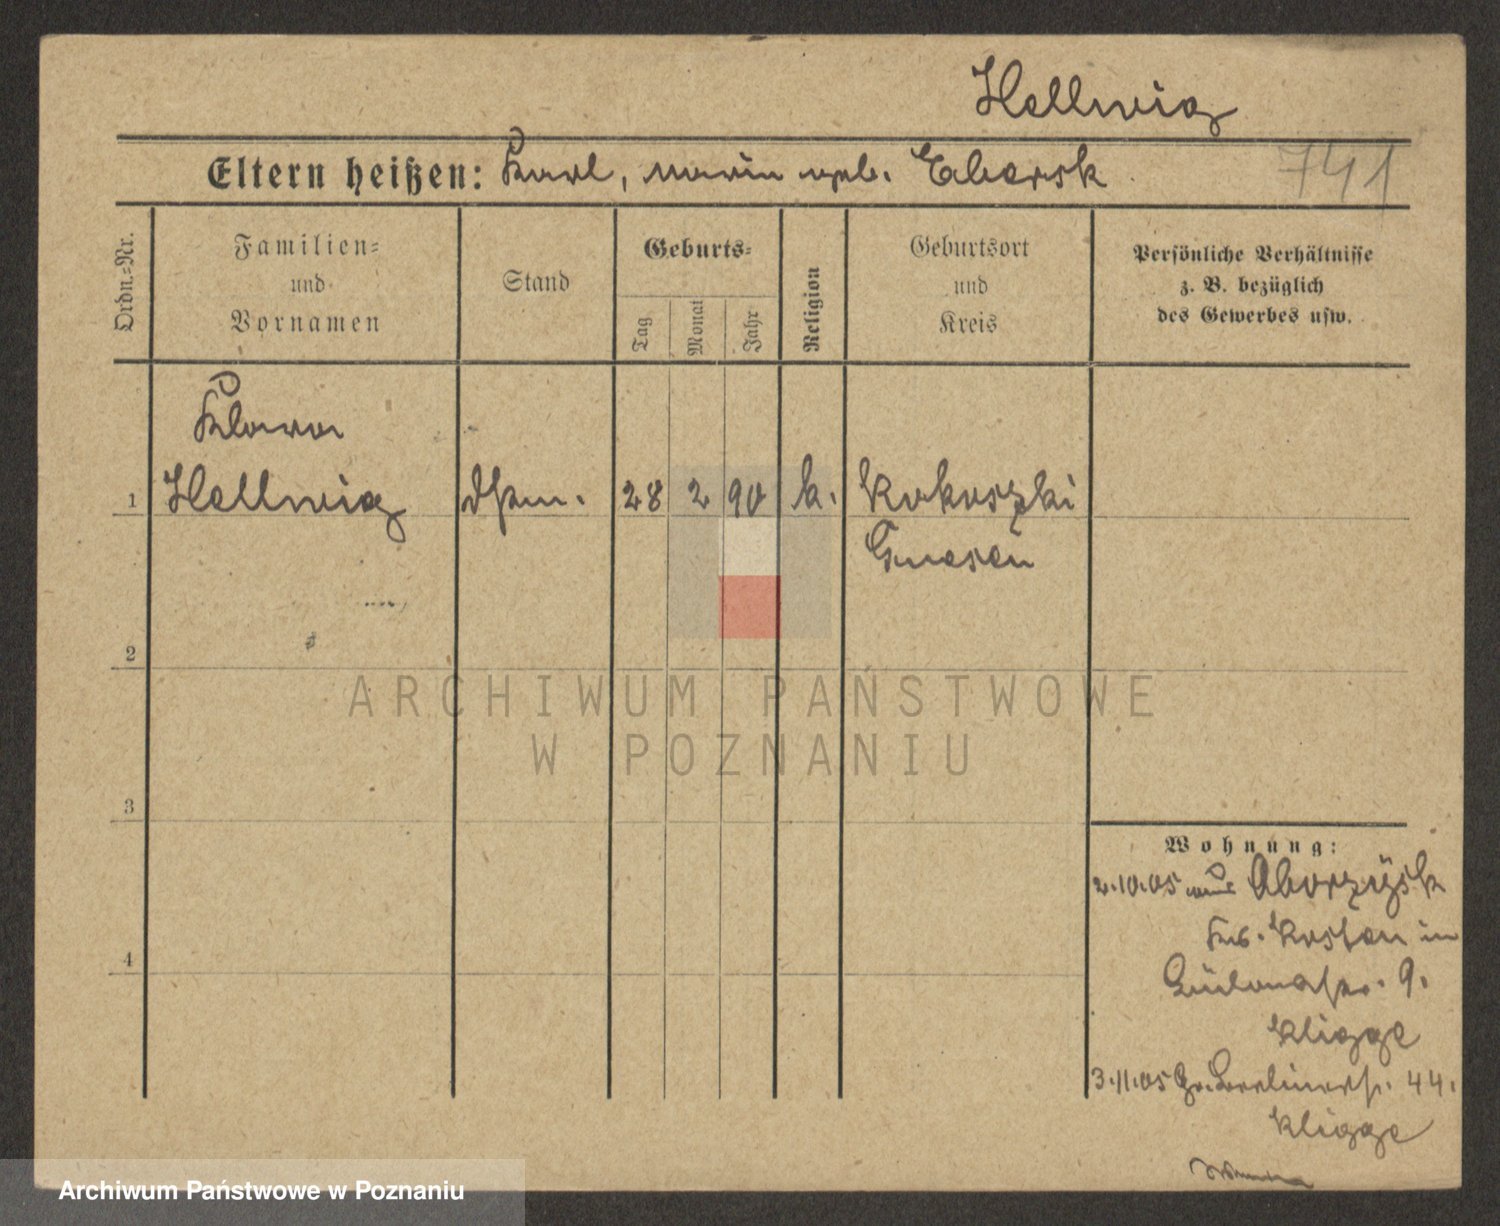 Hellwig
Eltern heißen: Karl, Marie geb. Eberst
741
Ordn.=Nr.
Familien=
und
Vornamen
Stand
Geburts=
Tag
Monat
Jahr
Religion
Geburtsort
und
Kreis
Persönliche Verhältnisse
z. B. bezüglich
des Gewerbes usw.
Klara
1 Hellwig 28 2 90 k. Kokoszki
Gnesen
2
ARCHIWUM PAŃSTWOWE
W POZNANIU
3
Wohnung:
2.10.05 aus Aborzysk
Krs. Kosten in
9.
Kligge
4
3.11.05 Gr. Berlinerstr. 44.
Kligge
Archiwum Państwowe w Poznaniu